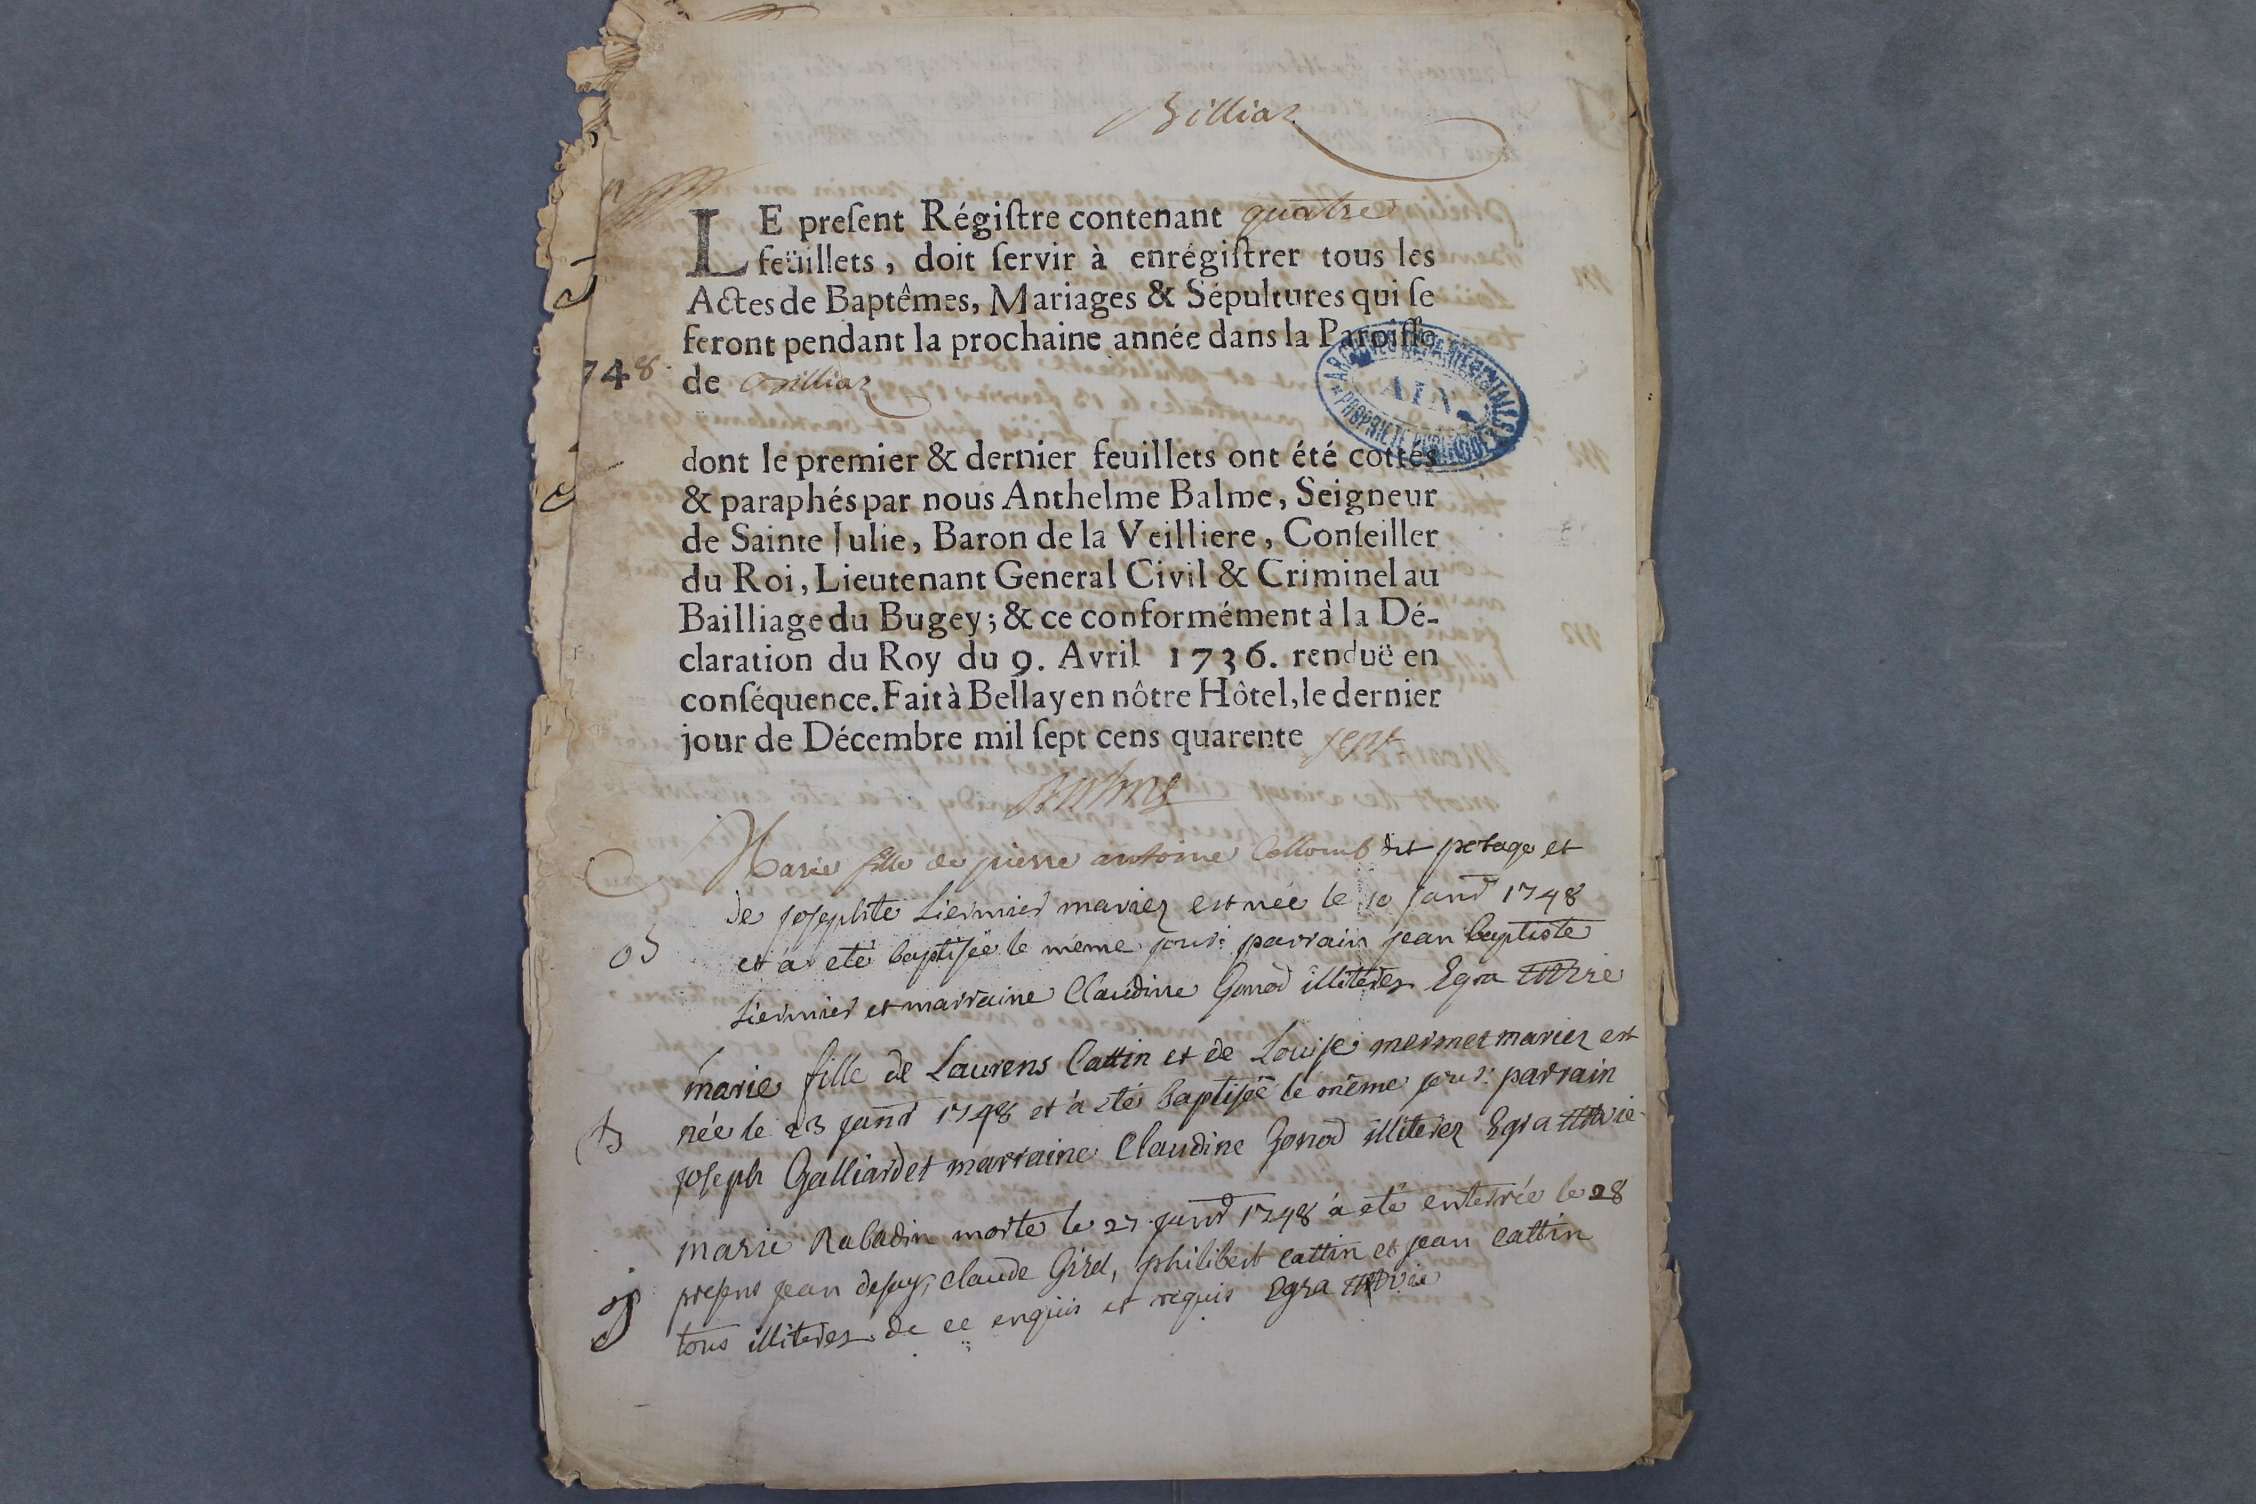 Billiaz
LE preſent Régiſtre contenant quatre
feüillets, doit ſervir à enrégiſtrer tous les
Actes de Baptêmes, Mariages & Sépultures qui ſe
feront pendant la prochaine année dans la Paroiſſe
748.
de Billiaz
ARCHIVES DEPARTEMENTALES
AIN
PROPRIETE PUBLIQUE
dont le premier & dernier feuillets ont été cottés
& paraphés par nous Anthelme Balme, Seigneur
de Sainte Julie, Baron de la Veilliere, Conſeiller
du Roi, Lieutenant General Civil & Criminel au
Bailliage du Bugey; & ce conformément à la Dé-
claration du Roy du 9. Avril 1736. renduë en
conſéquence. Fait à Bellay en nôtre Hôtel, le dernier
jour de Décembre mil ſept cens quarente sept
Marie fille de pierre antoine Collomb dit potage et
de josephte Liermier mariez est née le 10 janr 1748
et a eté baptisée le meme jour: parrain jean baptiste
Liermier et marraine Claudine Gonod illiterez Egra vic
marie fille de Laurens Cattin et de Louise mermet mariez est
née le 23 janr 1748 et à eté baptisée le même jour: parrain
B
joseph Galliard et marraine Claudine Gonod illiterez Egra vic
marie Rabadin morte le 27 janr 1748 à eté enterrée le 28
presens jean desuy, claude Girel, philibert cattin et jean cattin
S
tous illiterez de ce enquis et requis Egra vic